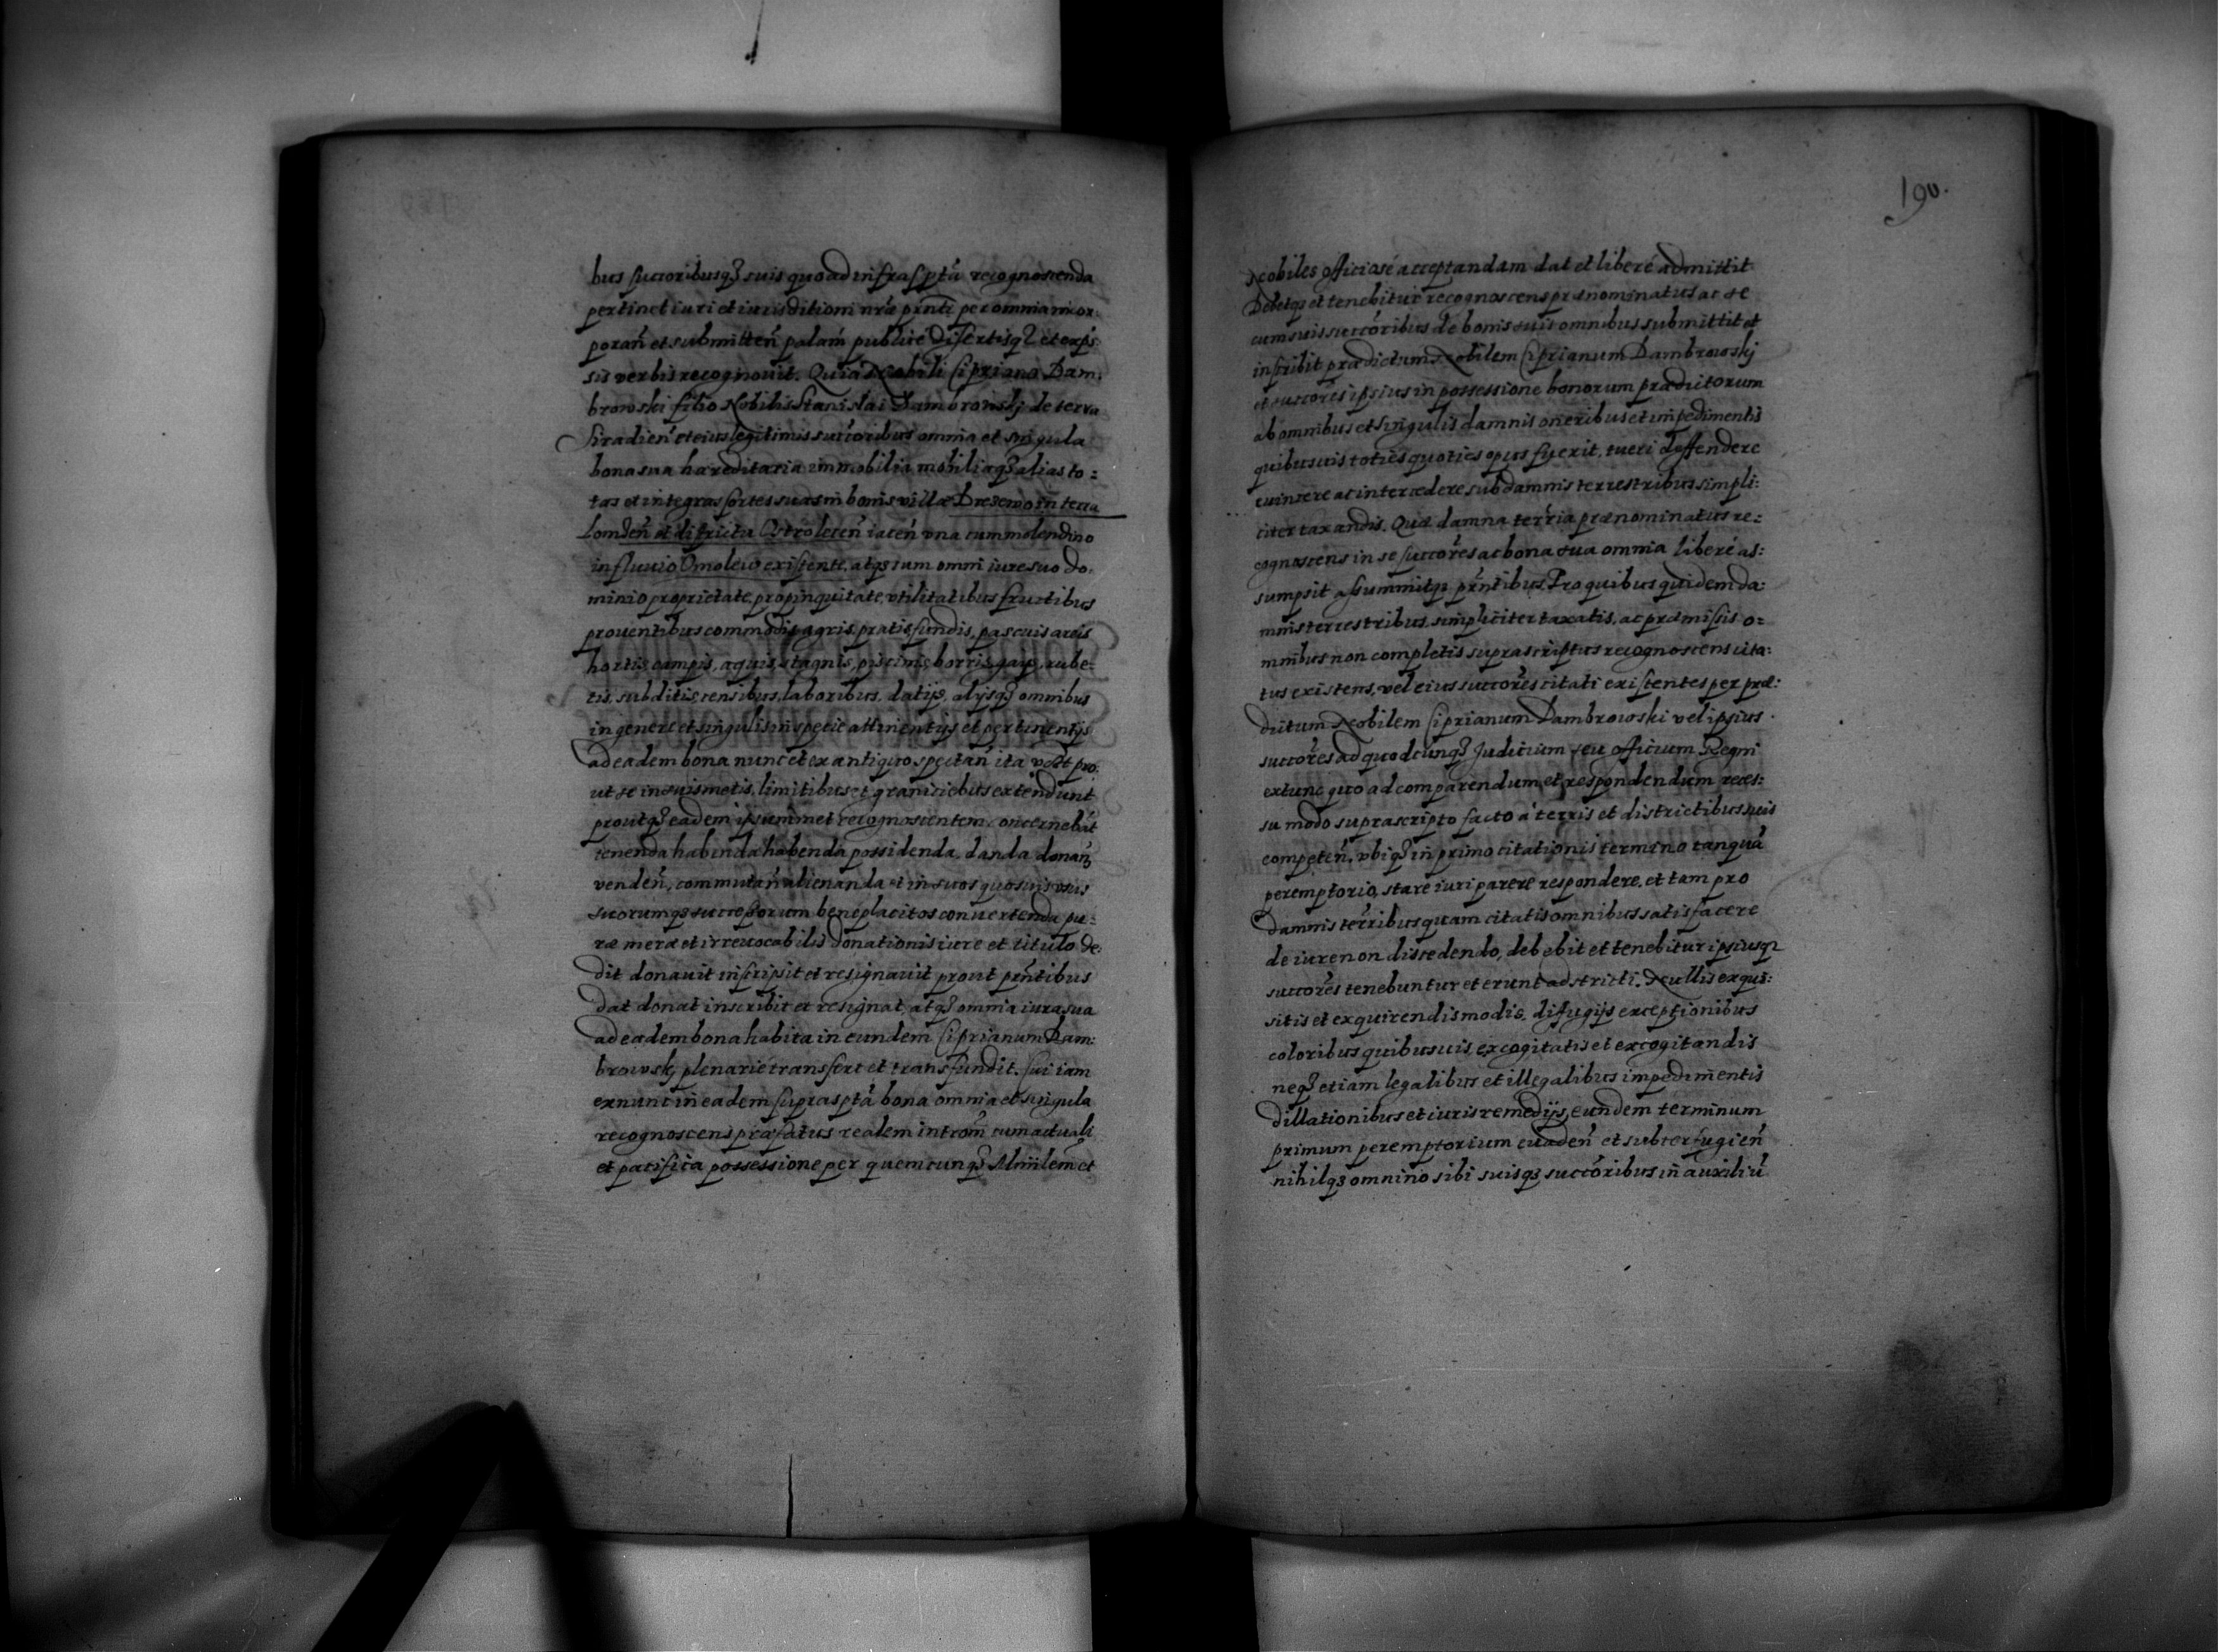 bus succoribusq3 suis quoad infrasptã recognoscenda
pertinet iuri et iurisditioni nræ prnti per omnia incor:
porañ et submitteñ palam publicè disertisq3 et exps:
sis verbis recognouit. Quia Nobili Cipriano Dam:
browski filio Nobilis Stanislai Dambrowskj de terra
Siradieñ et eius legitimis succoribus omnia et singula
bona sua hæreditaria immobilia mobiliaq3 alias to:
tas et integras sortes suas in bonis villæ Drezewo in terra
Lomzeñ et districtu Ostroleceñ iaceñ vna cum molendino
in fluuio Omolew existente, atq3 cum omni iure suo do:
minio proprietate, propinquitate, vtilitatibus fructibus
prouentibus commodis, agris, pratis, fundis, pascuis areis
hortis, campis, aquis, stagnis, piscinis, borris, gays, rube:
tis, subditis, censibus, laboribus, datijs, alijsq3 omnibus
in genere et singulis in specie attinentijs et pertinentijs
ad eadem bona nunc et ex antiquo spectañ ita pro:
ut se in suis metis, limitibus et graniciebus extendunt
proutq3 eadem ipsummet recognoscentem concernebãt
tenenda habenda possidenda, danda donañ,
vendeñ, commutañ alienanda et in suos quosuis vsus
suorumq3 successorum beneplacitos conuertenda pu:
ræ meræ et irreuocabilis donationis iure et titulo de:
dit donauit inscripsit et resignauit prout prñtibus
dat donat inscribit et resignat, atq3 omnia iura sua
ad eadem bona habita in eundem Ciprianum Dam:
browskj plenariè transfert et transfundit. Cui iam
ex nunc in eadem suprasptã bona omnia et singula
recognoscens præfatus realem introm̃ cum actuali
et pacifica possessione per quemcunq3 Mnĩlem et
190.
Nobiles officiosè acceptandam dat et liberè admittit
Debetq3 et tenebitur recognoscens prænominatus ac se
cum suis succoribus de bonis suis omnibus submittit et
inscribit prædictum Nobilem Ciprianum Dambrowskj
et succores ipsius in possessione bonorum prædictorum
ab omnibus et singulis damnis oneribus et impedimentis
quibusuis toties quoties opus fuerit, tueri deffendere
euincere ac intercedere sub damnis terrestribus simpli:
citer taxandis. Quæ damna terrria prænominatus re:
cognoscens in se succores ac bona sua omnia liberè as:
sumpsit assummitq3 prñtibus. Pro quibus quidem da:
mnis terrestribus, simpliciter taxatis, ac præmissis o:
mnibus non completis suprascriptus recognoscens cita:
tus existens, vel eius succores citati existentes per præ:
dictum Nobilem Ciprianum Dambrowski vel ipsius
succores ad quodcunq3 Judicium seu officium Regni
extunc quo ad comparendum et respondendum reces:
su modo suprascripto facto à terris et districtibus suis
competeñ, vbiq3 in primo citationis termino tanquã
peremptorio, stare iuri parere respondere, et tam pro
damnis terribus quam citatis omnibus satisfacere
de iure non discedendo, debebit et tenebitur ipsiusq3
succores tenebuntur et erunt adstricti. Nullis exqui:
sitis et exquirendis modis, difugijs exceptionibus
coloribus quibusuis, excogitatis et excogitandis
neq3 etiam legalibus et illegalibus impedimentis
dillationibus et iuris remedijs, eundem terminum
primum peremptorium euadeñ et subterfugieñ
nihilq3 omnino sibi suisq3 succoribus in auxiliũ